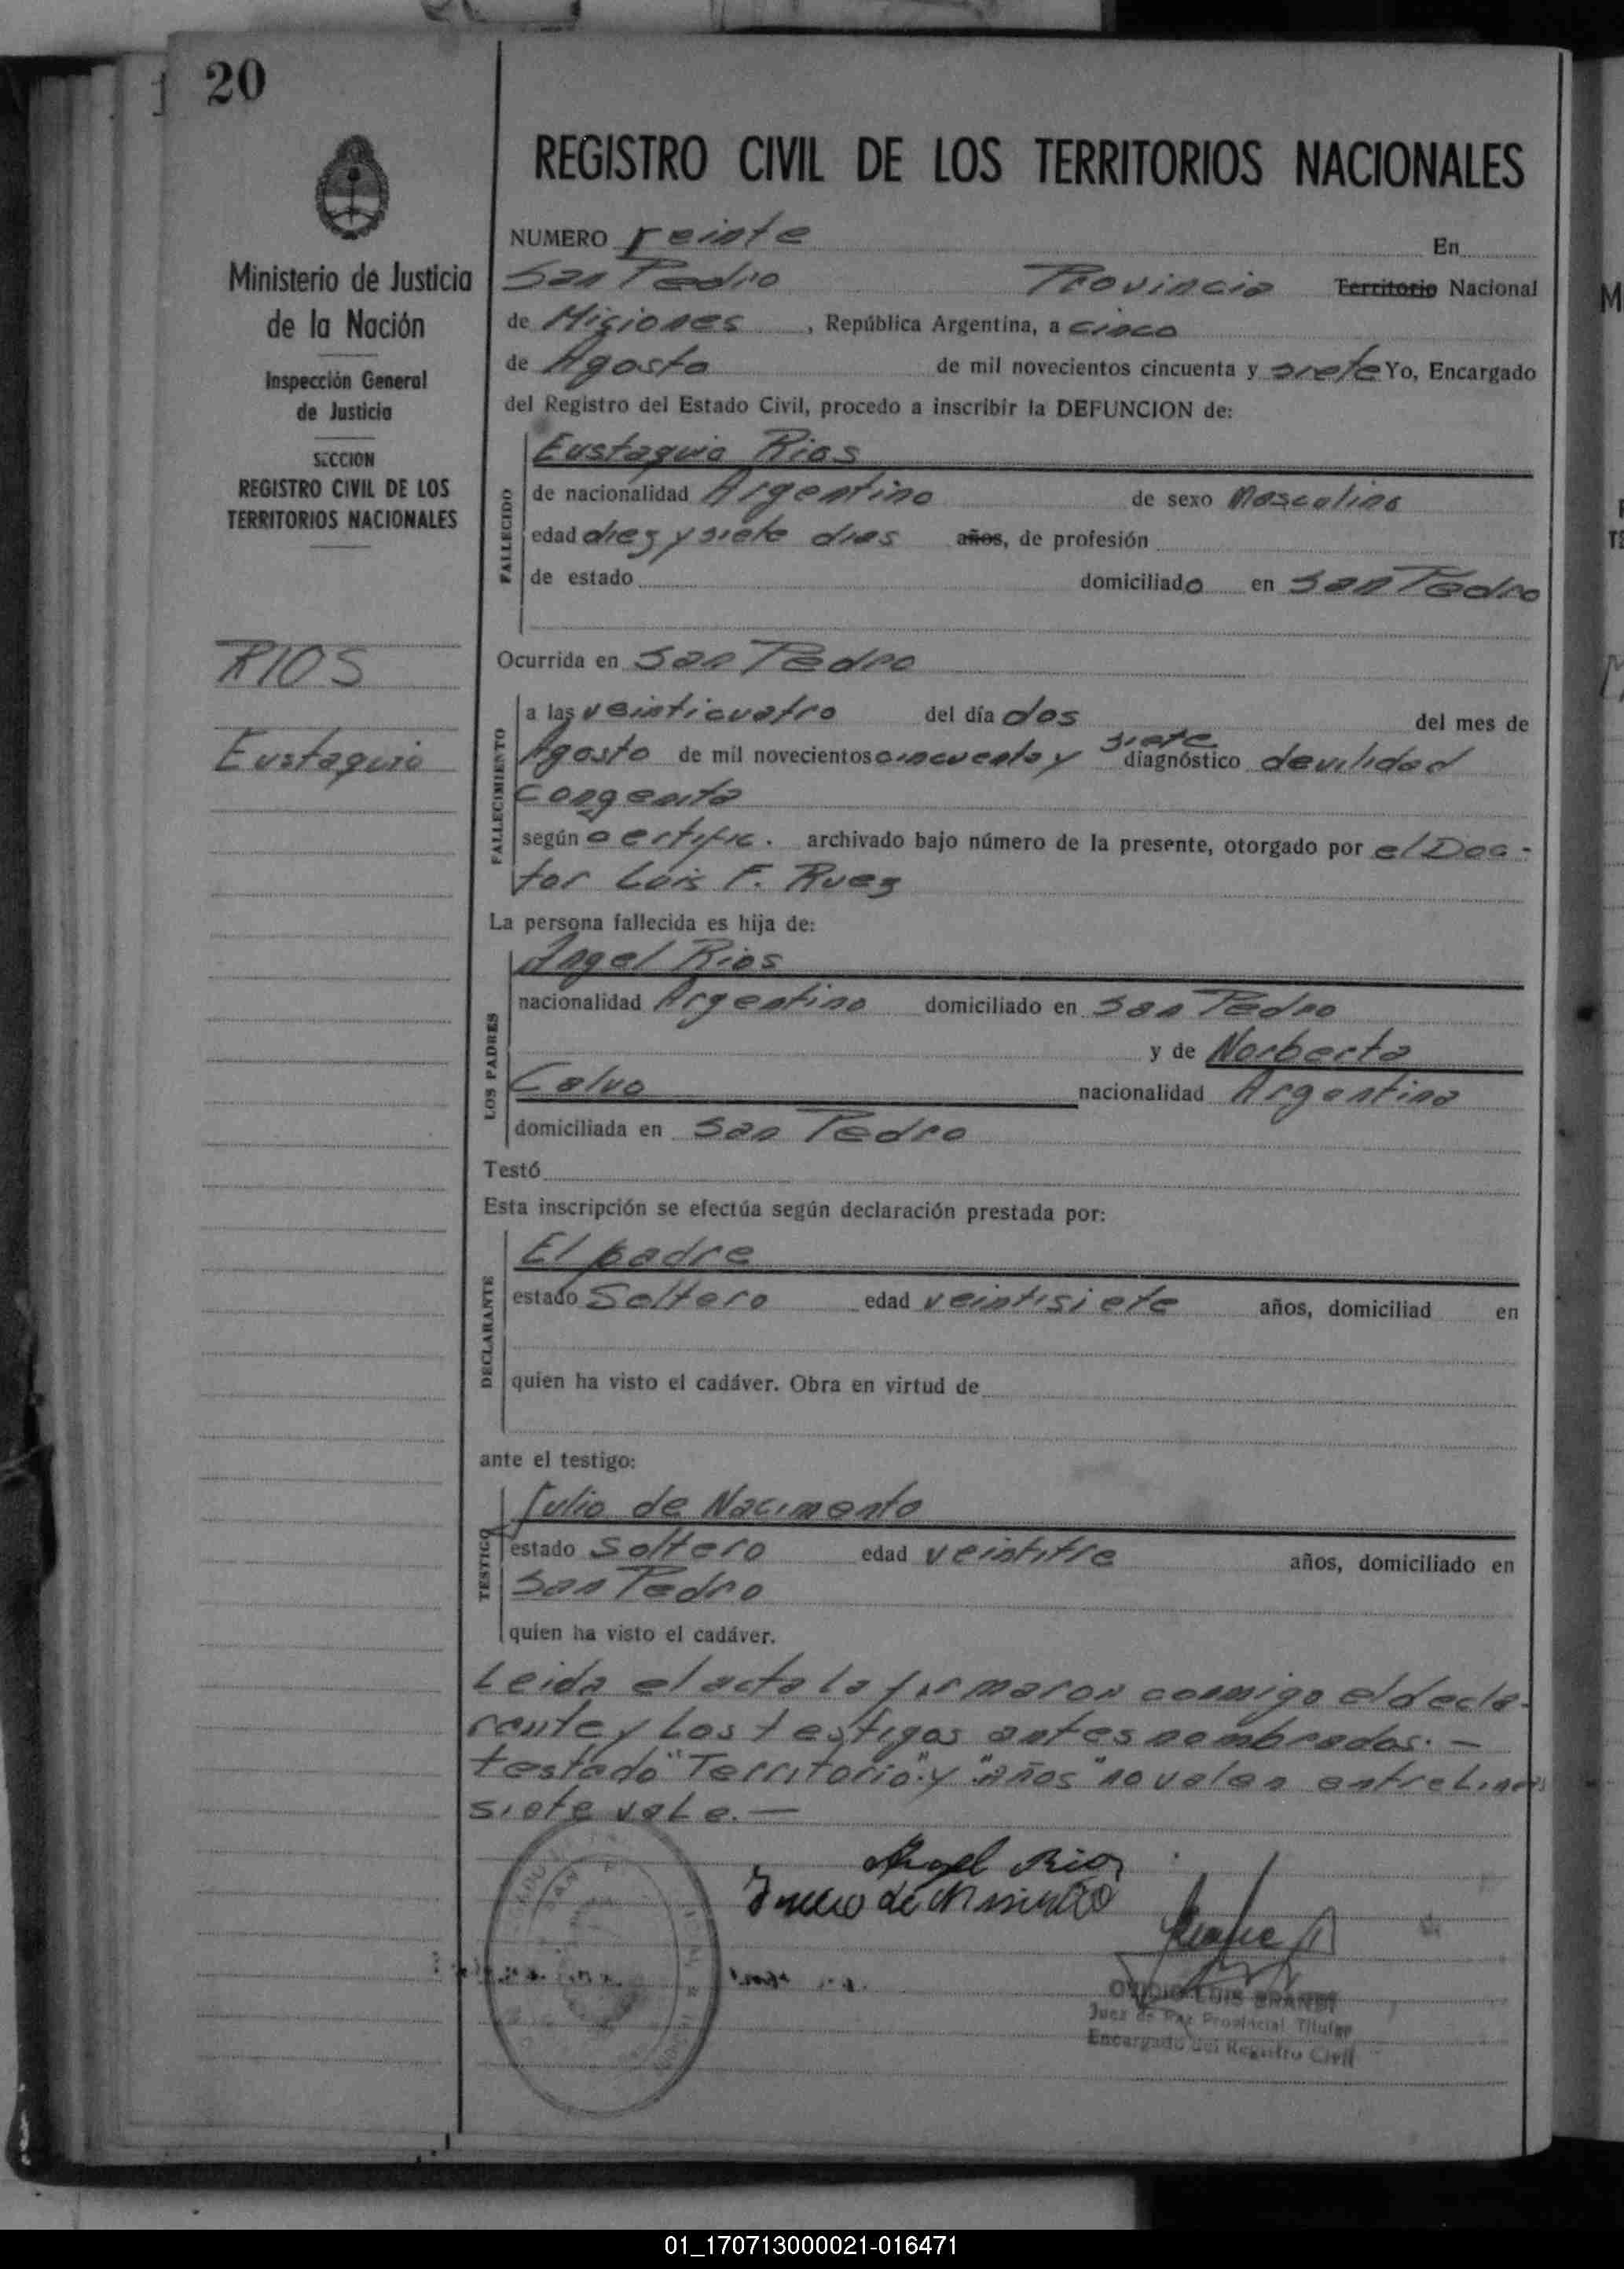 20
Ministerio de Justicia
de la Nación
Inspección General
de Justicia
SECCION
REGISTRO CIVIL DE LOS
TERRITORIOS NACIONALES
RIOS
Eustaquio
REGISTRO CIVIL DE LOS TERRITORIOS NACIONALES
NUMERO veinte En
San Pedro Provincia Territorio Nacional
de Misiones, República Argentina, a cinco
de Agosto de mil novecientos cincuenta y siete Yo, Encargado
del Registro del Estado Civil, procedo a inscribir la DEFUNCION de:
FALLECIDO
Eustaquio Rios
de nacionalidad Argentino de sexo Masculino
edad diez y siete dias años, de profesión
de estado domiciliado en San Pedro
Ocurrida en San Pedro
FALLECIMIENTO
a las veinticuatro del día dos del mes de
Agosto de mil novecientos cincuenta y siete diagnóstico devilidad
congenita
según certific. archivado bajo número de la presente, otorgado por el Doc-
tor Luis F. Ruez
La persona fallecida es hija de:
LOS PADRES
Angel Rios
nacionalidad Argentino domiciliado en San Pedro
y de Norberta
Calvo nacionalidad Argentina
domiciliada en San Pedro
Testó
Esta inscripción se efectúa según declaración prestada por:
DECLARANTE
El padre
estado Soltero edad veintisiete años, domiciliad en
quien ha visto el cadáver. Obra en virtud de
ante el testigo:
TESTIGO
Julio de Nacimento
estado Soltero edad veintitre años, domiciliado en
San Pedro
quien ha visto el cadáver.
Leida el acta la firmaron conmigo el decla-
rante y los testigos antes nombrados.-
testado "Territorio" y "años" no valen entreLineas
siete vale.-
Angel Rios
de
OVIDIO LUIS BRANDT
Juez de Paz Provincial Titular
Encargado del Registro Civil
01_170713000021-016471